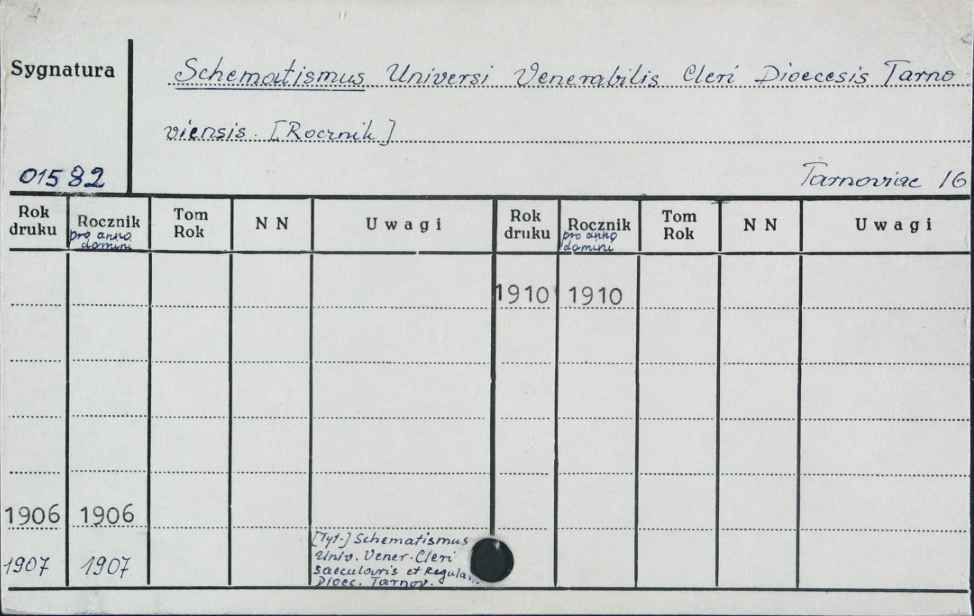 Sygnatura
Schematismus Universi Venerabilis Cleri Dioecesis Tarno
viensis. [Rocznik]
01582
Tarnoviae 16
Rok druku Rocznik pro anno domini Tom Rok N N Uwagi Rok druku Rocznik pro anno domini Tom Rok N N Uwagi
1910 1910
1906 1906
1907 1907 [Tyt.] Schematismus
Univ. Vener. Cleri
saecularis et Regula
Dioec. Tarnov.